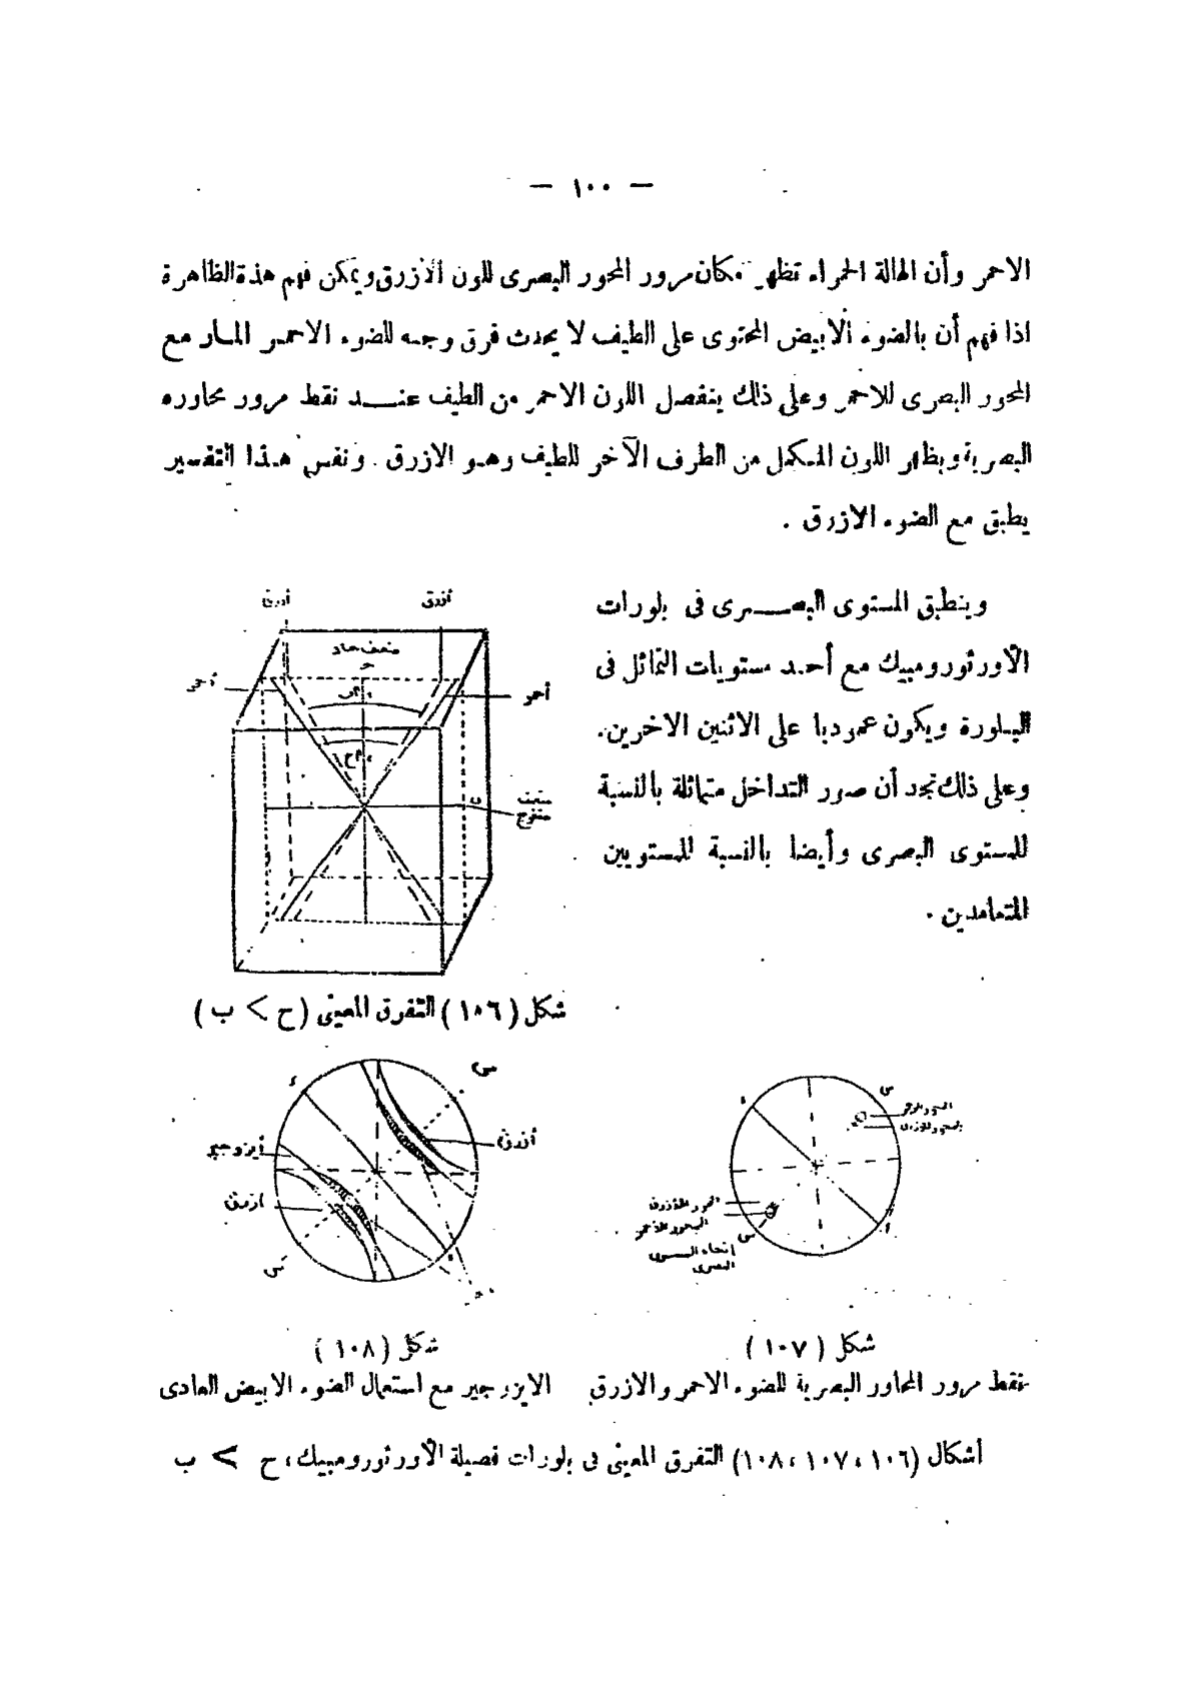 — ١٠٠ —
الاحمر وأن الهالة الحمراء تظهر مكان مرور المحور البصرى للون الأزرق ويمكن فهم هذة الظاهرة
اذا فهم أن بالضوء الأبيض المحتوى على الطيف لا يحدث فرق وجه للضوء الاحمر المار مع
المحور البصرى للاحمر وعلى ذلك ينفصل اللون الاحمر من الطيف عند نقط مرور محاوره
البصرية ويظهر اللون المكمل من الطرف الآخر للطيف وهو الازرق . ونفس هذا التفسير
يطبق مع الضوء الازرق .
وينطبق المستوى البصرى فى بلورات
الأورثورومبيك مع أحد مستويات التماثل فى
البلورة ويكون عموديا على الاثنين الاخرين.
وعلى ذلك نجد أن صور التداخل متماثلة بالنسبة
للمستوى البصرى وأيضا بالنسبة للمستويين
المتعامدين .
أزرق
أزرق
منصف حاد
أحمر
أحمر
منصف
منفرج
شكل (١٠٦) التفرق المعينى (ح > ب)
س
أزرق
أيزوجير
أزرق
س
س
المحور الأزرق
المحور الأحمر
س
إتجاه المستوى
البصرى
شكل (١٠٧)
نقط مرور المحاور البصرية للضوء الاحمر والازرق
شكل (١٠٨)
الايزرجير مع استعمال الضوء الابيض العادى
أشكال (١٠٦ ، ١٠٧ ، ١٠٨) التفرق المعينى فى بلورات فصيلة الأورثورومبيك ، ح > ب